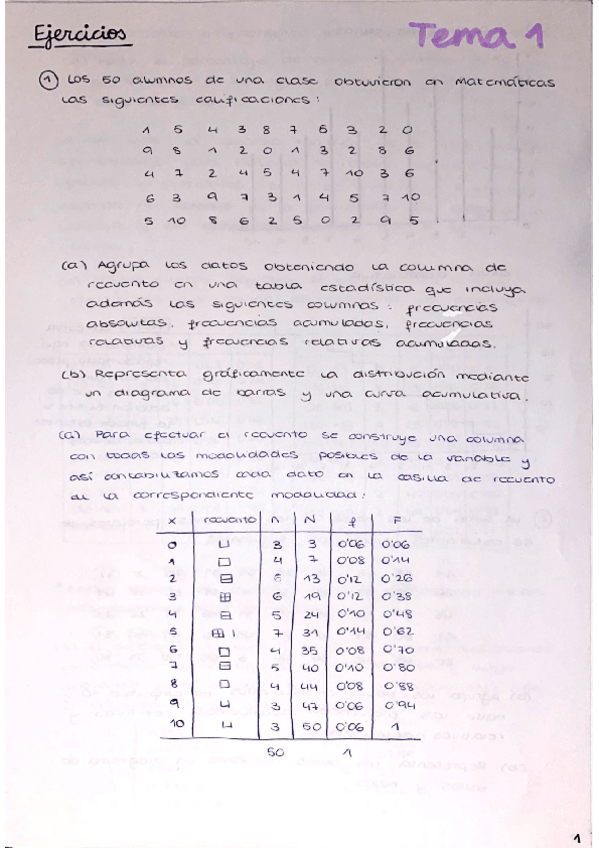 Ejercicios
Tema 1
1 Los 50 alumnos de una clase obtuvieron en matemáticas
las siguientes calificaciones:
1 5 4 3 8 7 6 3 2 0
9 8 1 2 0 1 3 2 8 6
4 7 2 4 5 4 7 10 3 6
6 3 9 7 3 1 4 5 7 10
5 10 8 6 2 5 0 2 9 5
(a) Agrupa los datos obteniendo la columna de
recuento en una tabla estadística que incluya
además las siguientes columnas: frecuencias
absolutas, frecuencias acumuladas, frecuencias
relativas y frecuencias relativas acumuladas.
(b) Representa gráficamente la distribución mediante
un diagrama de barras y una curva acumulativa.
(a) Para efectuar el recuento se construye una columna
con todas las modalidades posibles de la variable y
así contabilizamos cada dato en la casilla de recuento
de la correspondiente modalidad:
x recuento n N f F
0 3 3 0'06 0'06
1 4 7 0'08 0'14
2 6 13 0'12 0'26
3 6 19 0'12 0'38
4 5 24 0'10 0'48
5 7 31 0'14 0'62
6 4 35 0'08 0'70
7 5 40 0'10 0'80
8 4 44 0'08 0'88
9 3 47 0'06 0'94
10 3 50 0'06 1
50 1
1